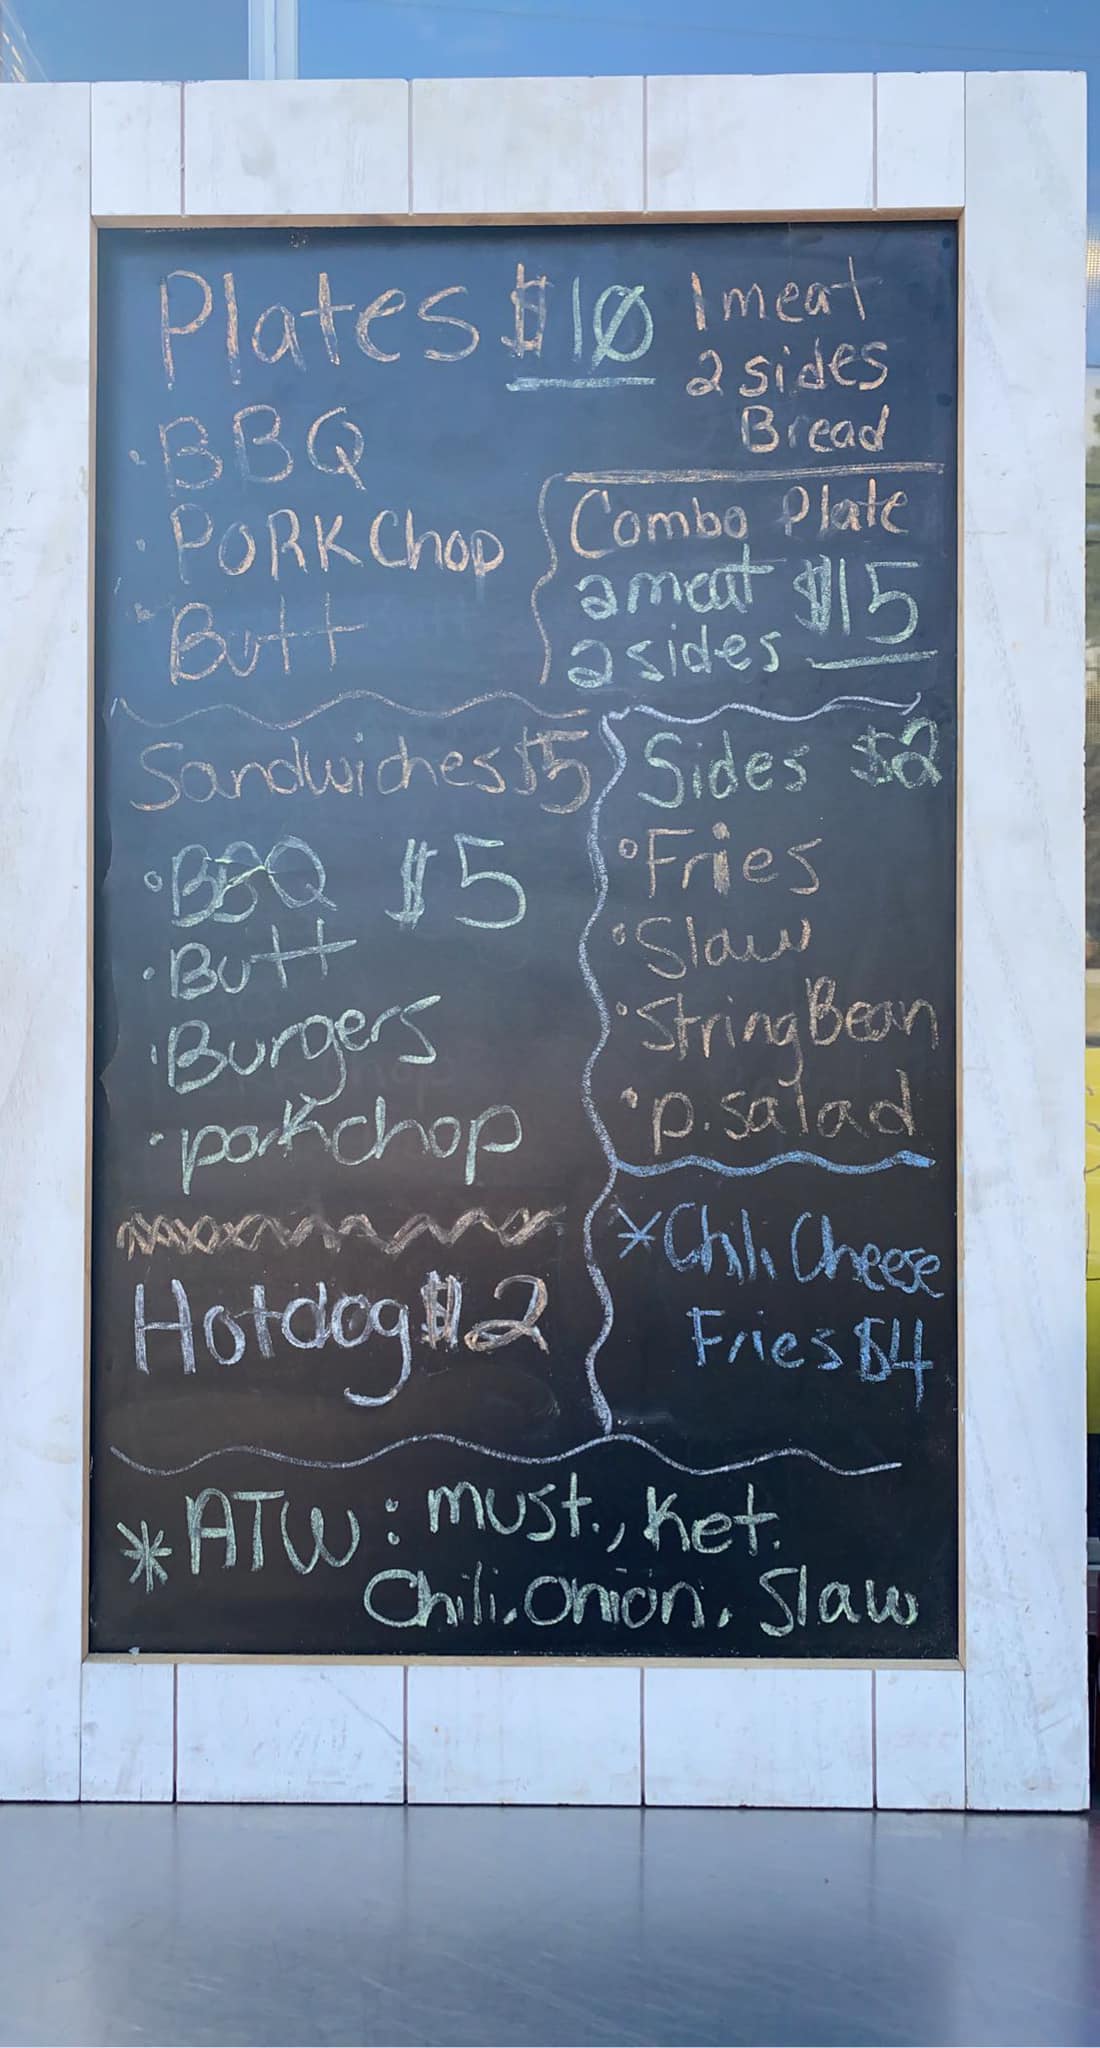 Plates $10
1 meat
2 sides
Bread
BBQ
PORK Chop
Butt
Combo Plate
2 meat $15
2 sides
Sandwiches $5
BBQ $5
Butt
Burgers
porkchop
Hotdog $2
Sides $2
Fries
Slaw
String Bean
p. salad
*Chili Cheese
Fries $4
*ATW: must., Ket.
Chili. Onion. Slaw